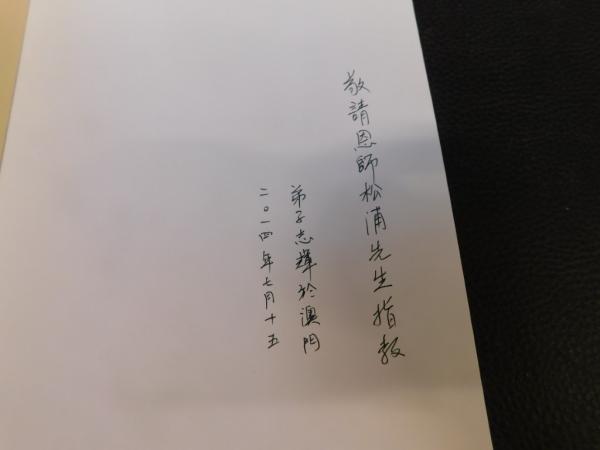 敬請恩師松浦先生指教
弟子志輝於澳門
二〇一四年七月十五